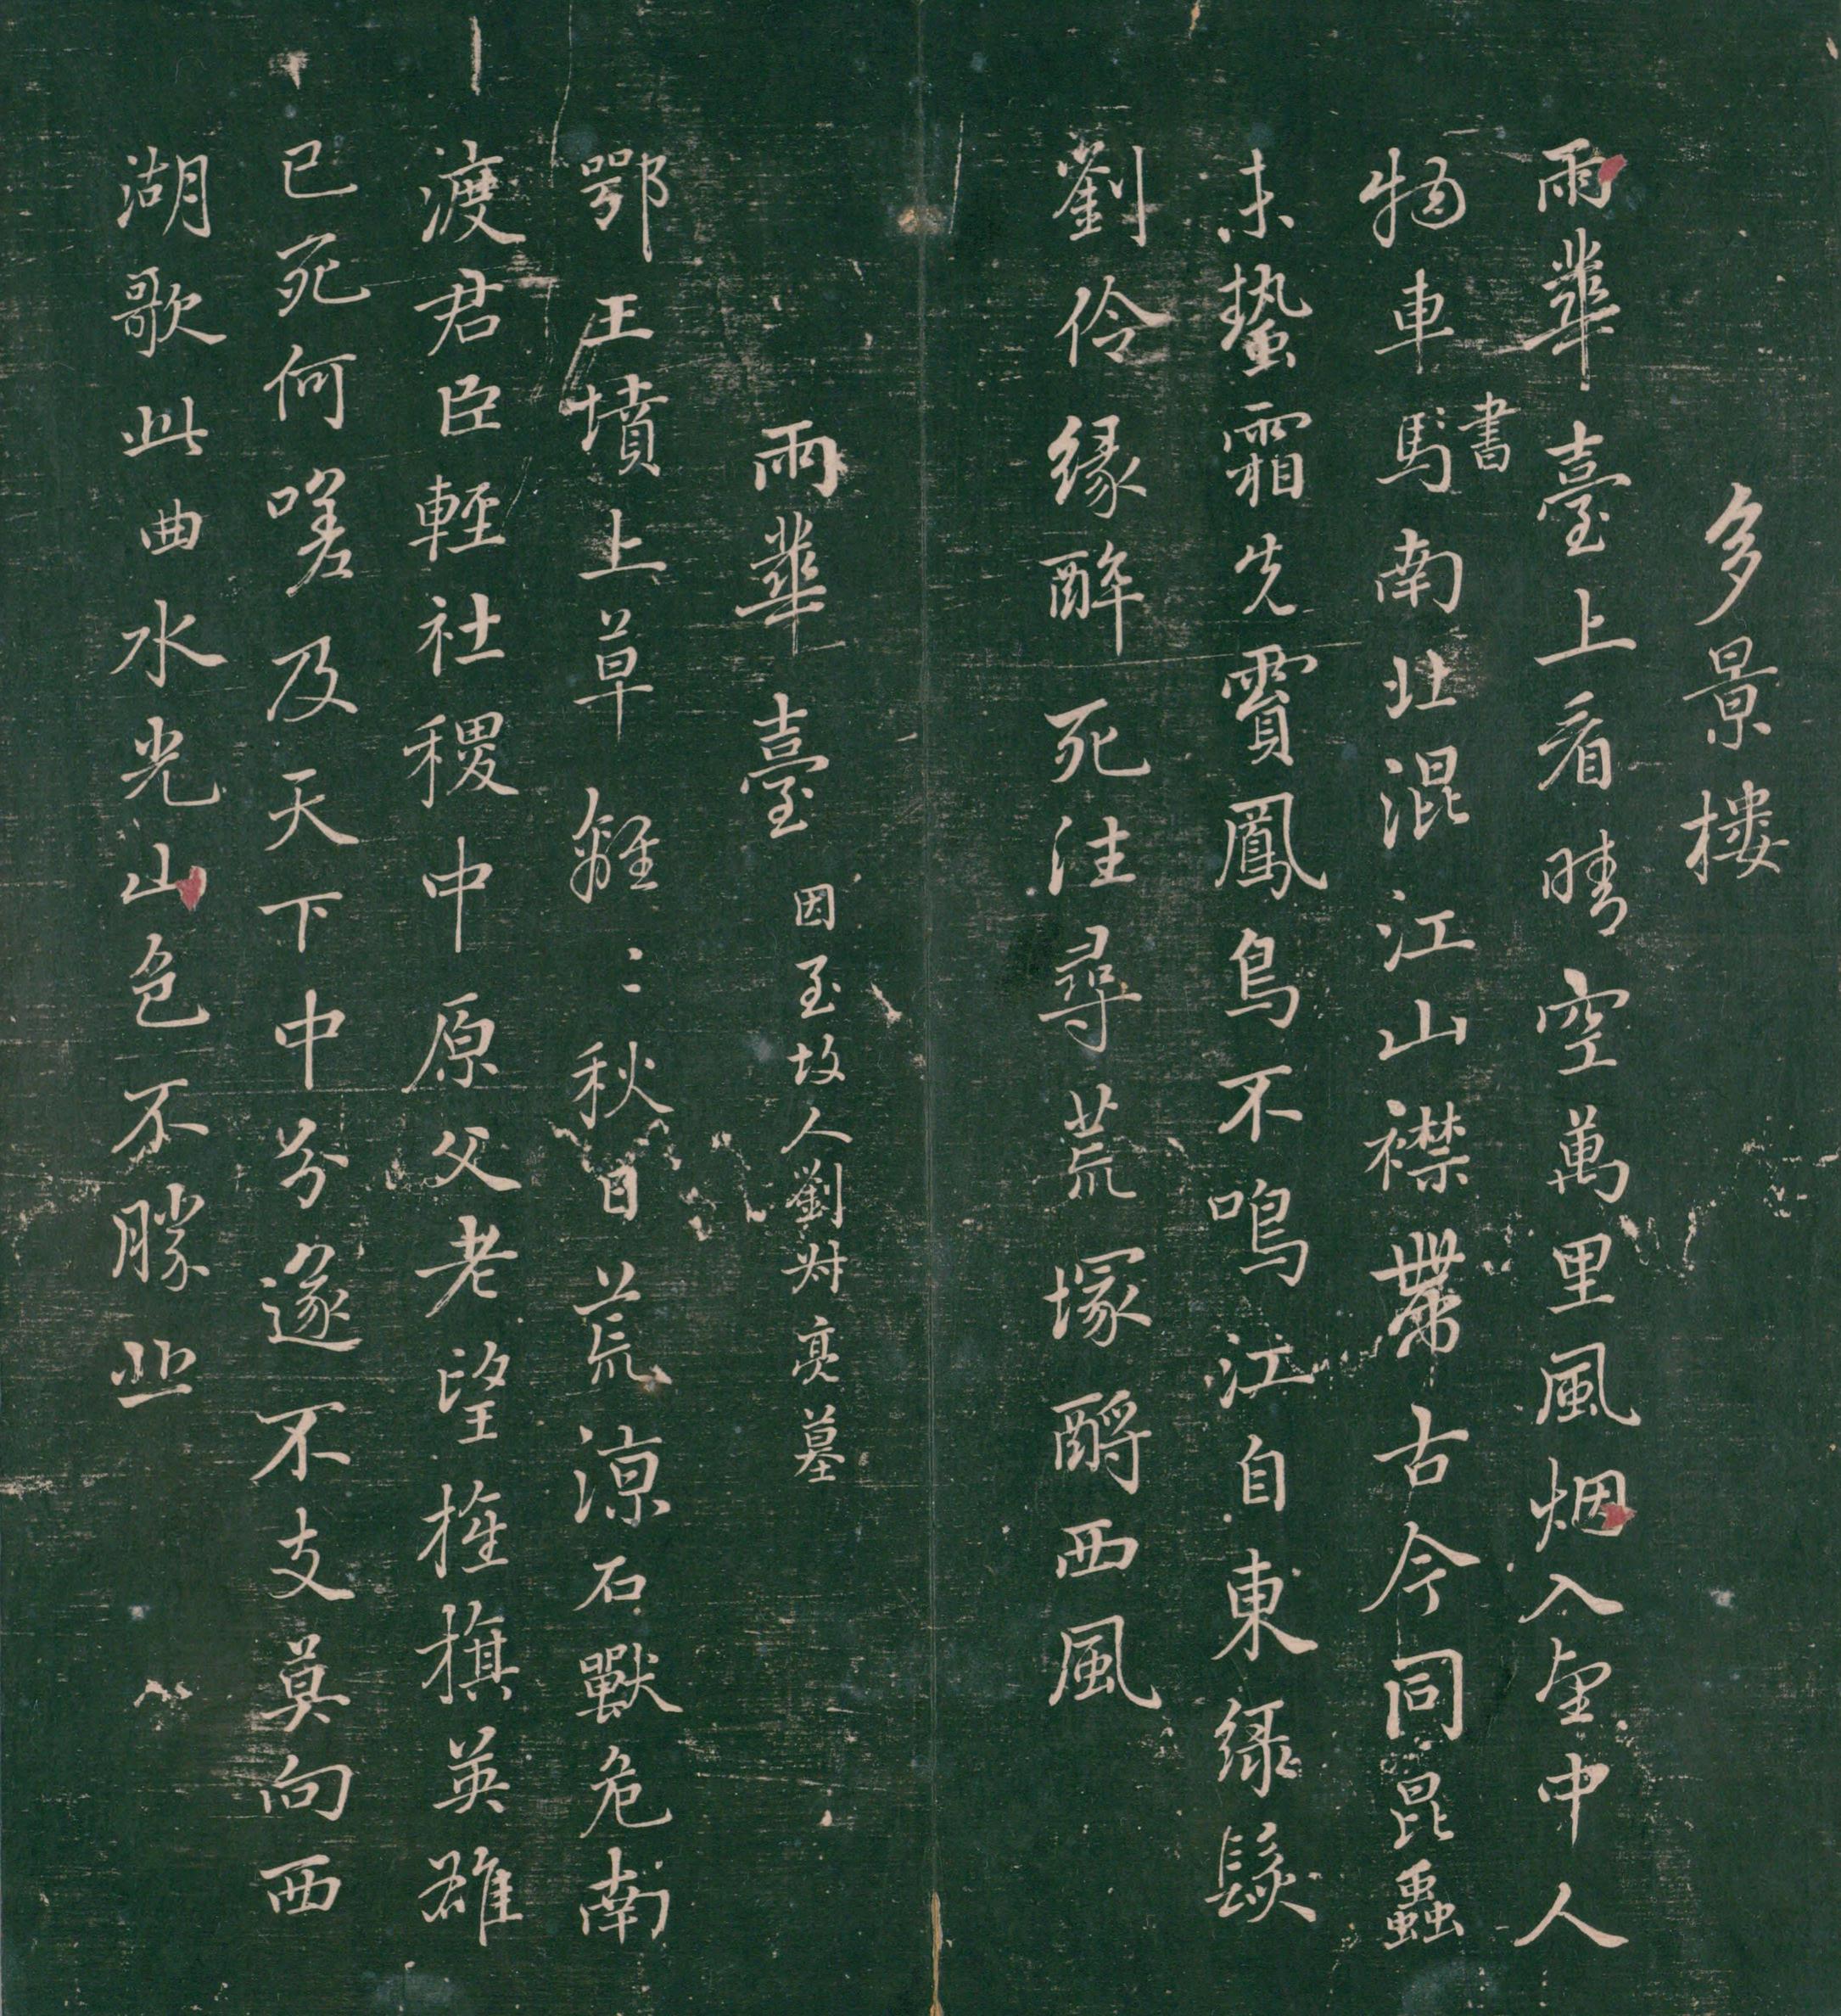 多景樓
雨華臺上看晴空萬里風烟入望中人
物車書馬南北混江山襟帶古今同昆蟲
未蟄霜先實鳳鳥不鳴江自東綠鬢
劉伶緣醉死往尋荒塚酹西風
雨華臺 因至故人劉叔亮墓
鄂王墳上草離〻秋日荒涼石獸危南
渡君臣輕社稷中原父老望旌旗英雄
已死何嗟及天下中分遂不支莫向西
湖歌此曲水光山色不勝悲